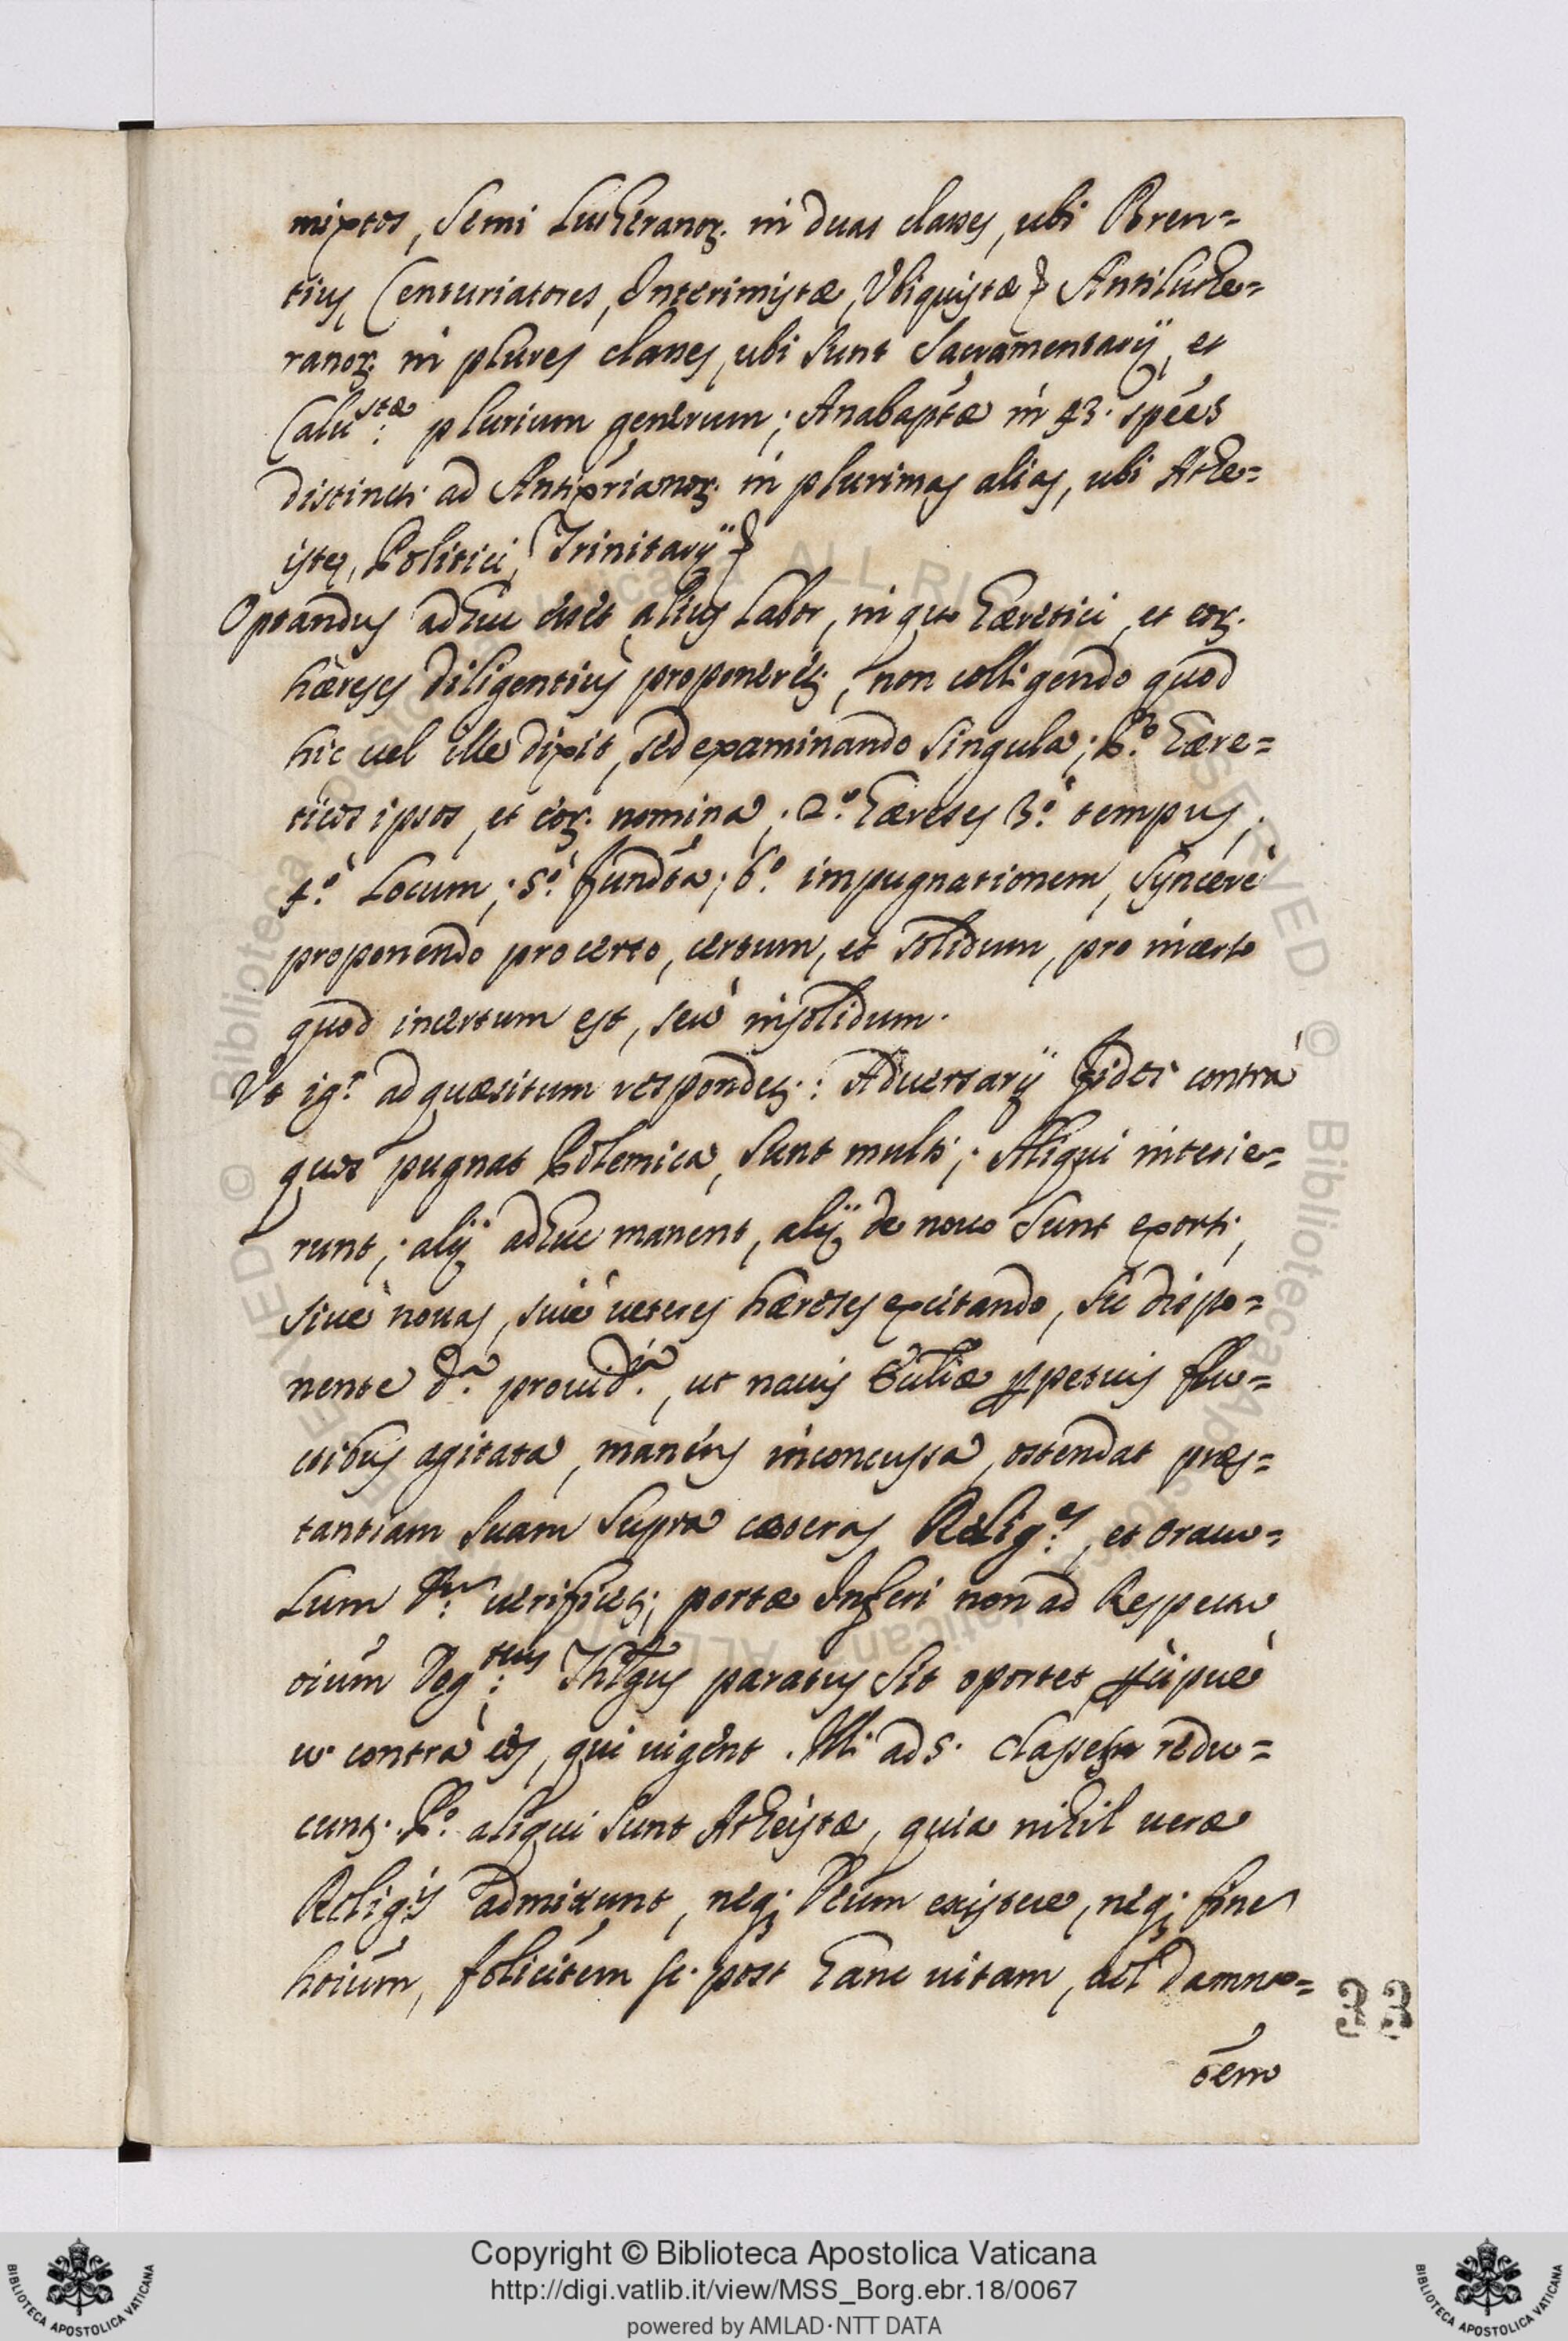 mixtos, Semi Lutheranoꝝ. in duas classes, ubi Bren=
tius, Centuriatores, Interimistæ, Ubiquistæ} Antiluthe=
ranoꝝ. in plures classes, ubi sunt Sacramentarij, et
Calu:stæ plurium generum; Anabaptæ in 43. spées
distincti ad Antixrianoꝝ. in plurimas alias, ubi Athe=
istę, Politici, Trinitarij}
Optandus adhuc esset alius labor, in quo hæretici, et eoꝝ.
hæreses diligentius proponereꝫ, non colligendo quod
hic uel ille dixit, sed examinando singula; P.º hære=
ticos ipsos, et eoꝝ. nomina; 2.º hæreses 3.º tempus,
4.º Locum; 5.º fundta; 6.º impugnationem, synceré
proponendo pro certo, certum, et solidum, pro incerto
quod incertum est, seu insolidum.
Ut ig.r ad quæsitum respondeꝫ: Aduersarij fidei contra
quos pugnat Polemica, sunt multi; Aliqui interie=
runt; alij adhuc manent, alij de nouo sunt exorti,
siue nouas, siue ueteres hæreses excitando, sic dispo=
nente d.a prouid.ia, ut nauis Ecclíæ ꝑpetuis flu=
ctibus agitata, manens inconcussa, ostendat præs=
tantiam suam supra cæteras Relig.es, et oracu=
lum uerificeꝫ; portæ Inferi non ad Respectu
oium Dog:tum Thlgus paratus sit oportet,
uº contra eos, qui uigent. Illi ad 5. classes redu=
cunꝫ. P.º aliqui sunt Atheistæ, quia nihil ueræ
Relig:is admittunt, neqꝫ Deum existere, neqꝫ fine
hoium, felicitem sc. post hanc uitam, uel damna=
oem
33
Copyright © Biblioteca Apostolica Vaticana
http://digi.vatlib.it/view/MSS_Borg.ebr.18/0067
powered by AMLAD·NTT DATA
BIBLIOTECA APOSTOLICA VATICANA
BIBLIOTECA APOSTOLICA VATICANA